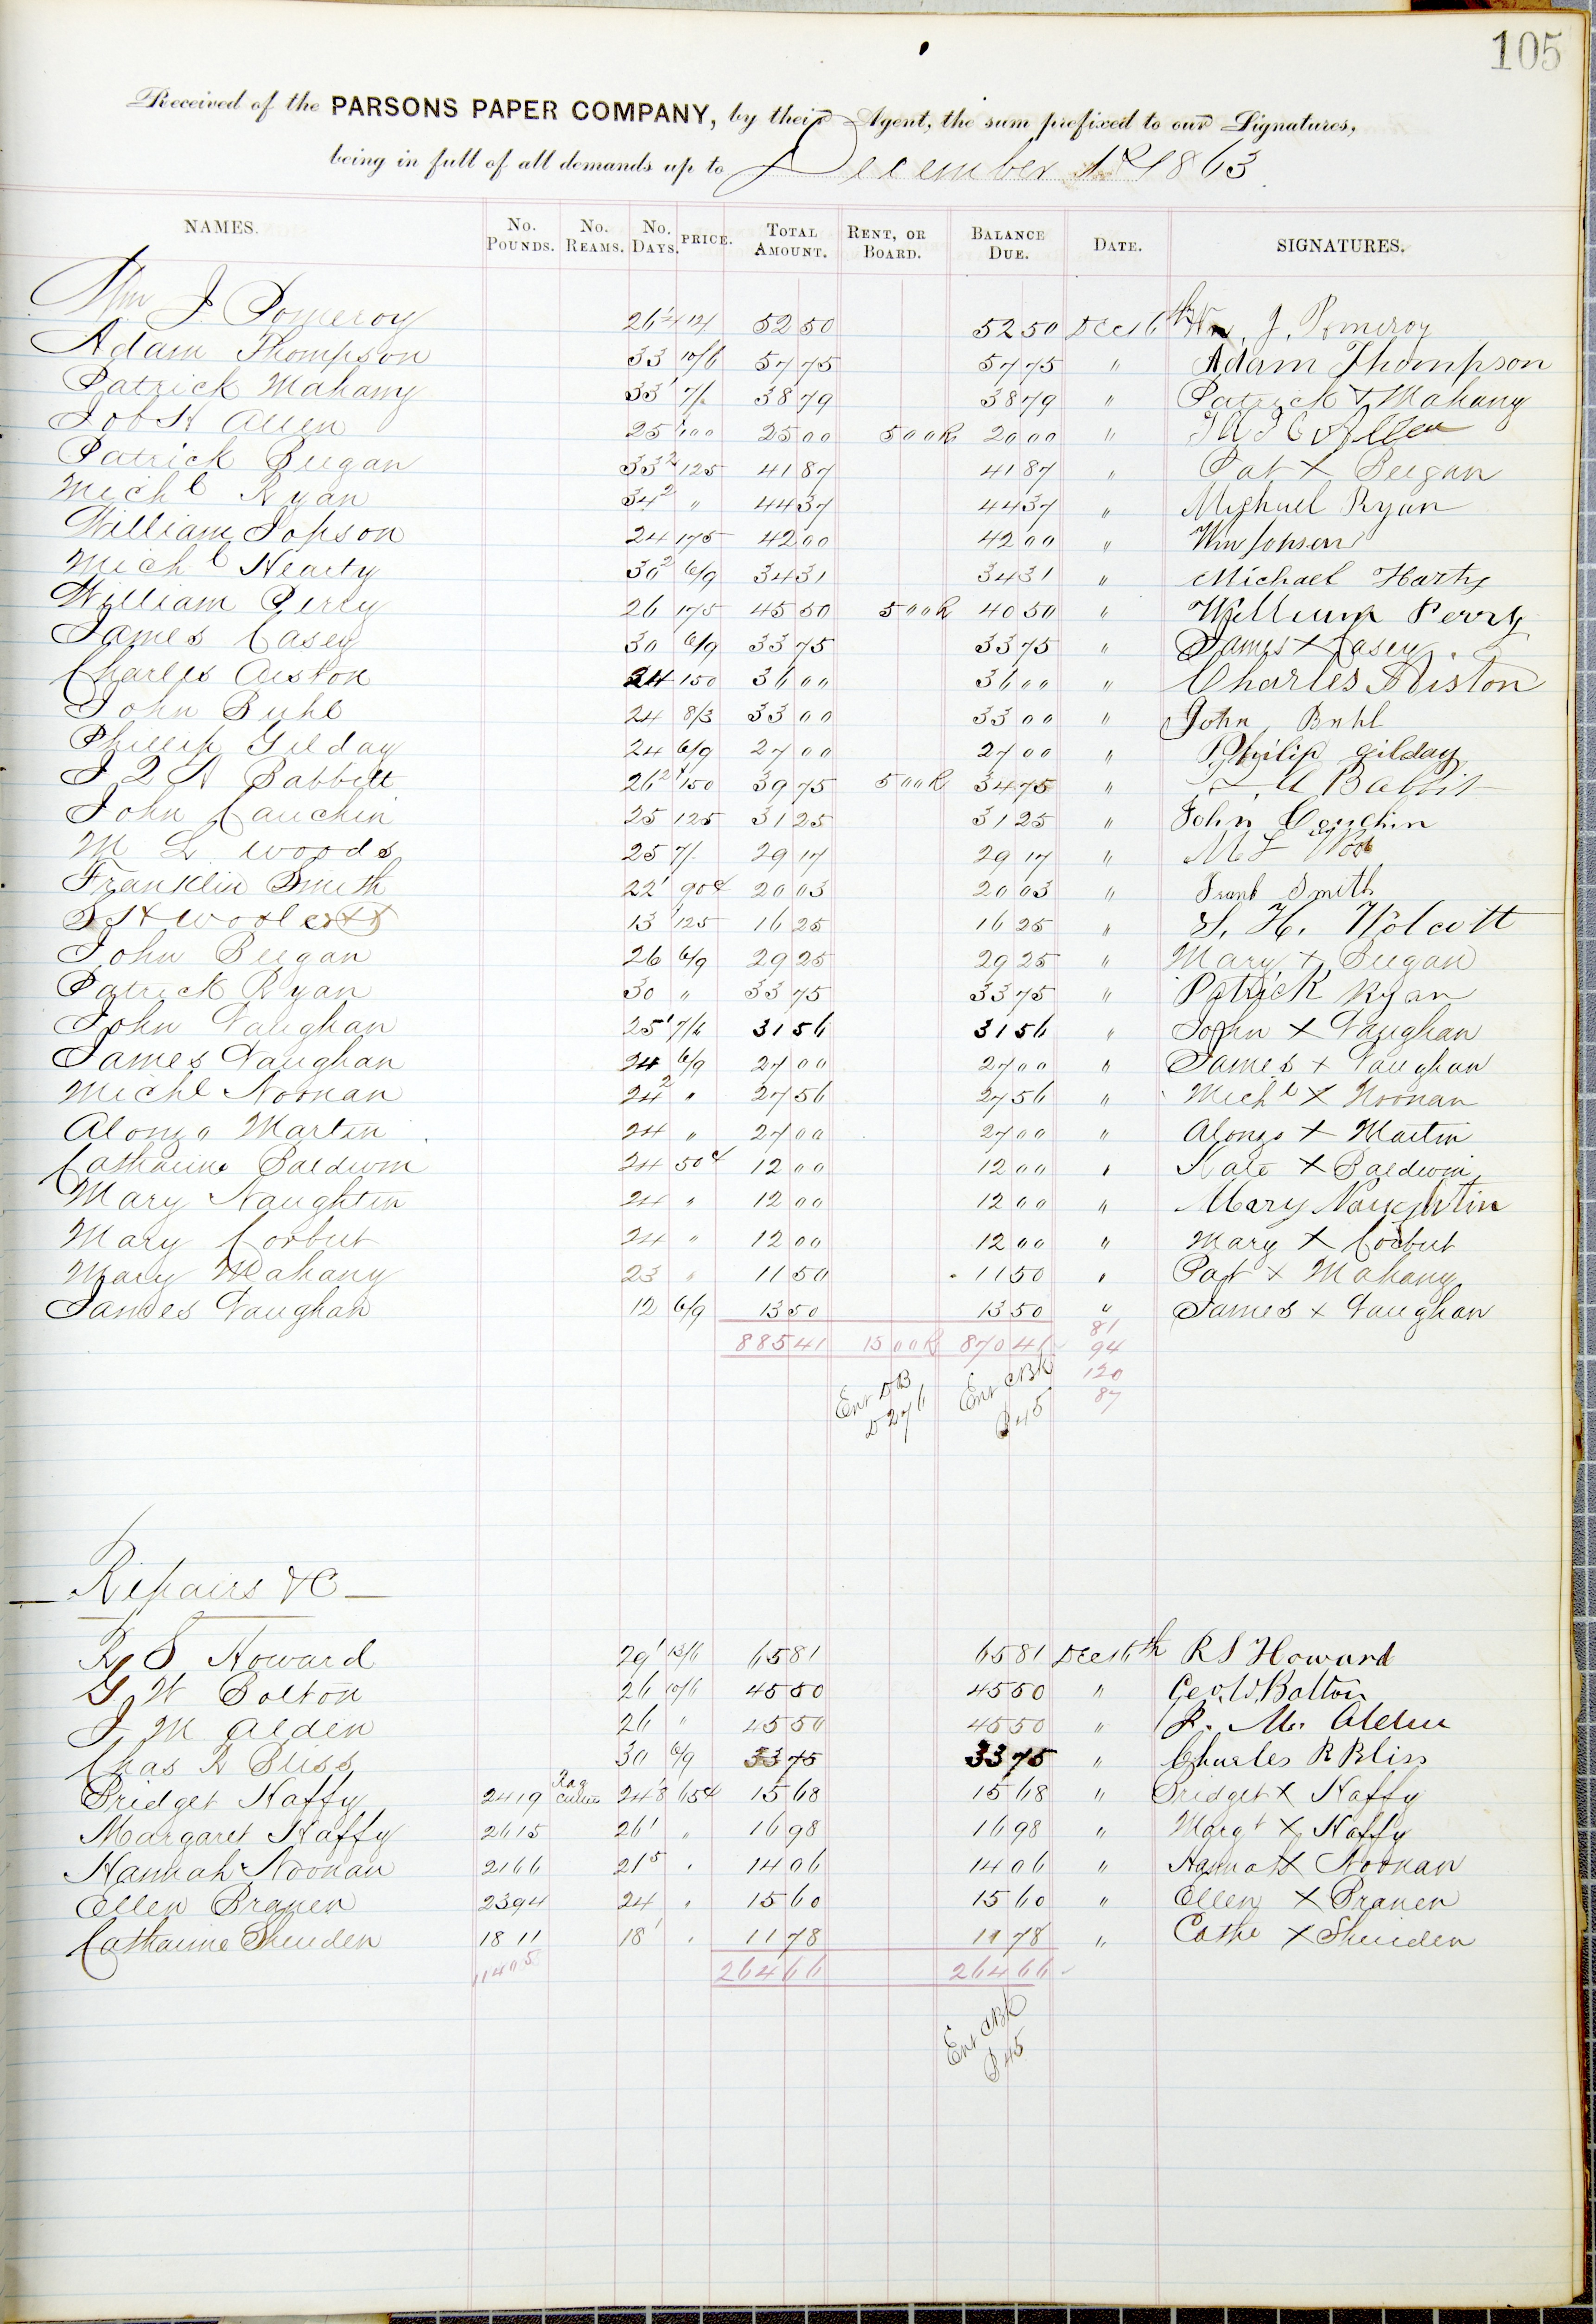 105
Received of the PARSONS PAPER COMPANY, by their Agent, the sum prefixed to our Signatures,
being in full of all demands up to December 1st 1863
NAMES. No. POUNDS. No. REAMS. No. DAYS. PRICE. TOTAL AMOUNT. RENT, OR BOARD. BALANCE DUE. DATE. SIGNATURES.
Wm J. Pomeroy 26¼ 12/ 52 50 52 50 Dec 16th Wm. J. Pomeroy
Adam Thompson 33 10/6 57 75 57 75 " Adam Thompson
Patrick Mahany 33' 7/. 38 79 38 79 " Patrick X Mahany
Job H Allen 25 100 25 00 5 00 R 20 00 " Allen
Patrick Beegan 33² 125 41 87 41 87 " Pat X Beegan
Michl Ryan 34² " 44 37 44 37 " Mighuel Ryan
William Jopson 24 175 42 00 42 00 " Wm Jopson
Michl Hearty 30² 6/9 34 31 34 31 " Michael Harty
William Perry 26 175 45 50 5 00 R 40 50 " William Perry
James Casey 30 6/9 33 75 33 75 " James X Casey
Charles Auston 24 150 36 00 36 00 " Charles Auston
John Buhl 24 8/3 33 00 33 00 " John Buhl
Phillip Gilday 24 6/9 27 00 27 00 " Philip gilday
J Q A Babbett 26² 150 39 75 5 00 R 34 75 " A Babbit
John Cauchin 25 125 31 25 31 25 " John Cauchin
M L Woods 25 7/. 29 17 29 17 " M L Wood
Franklin Smith 22' 90¢ 20 03 20 03 " Frank Smith
S H Woolcott 13 125 16 25 16 25 " S. H. Wolcott
John Beegan 26 6/9 29 25 29 25 " Mary X Beegan
Patrick Ryan 30 " 33 75 33 75 " Patrick Ryan
John Vaughan 25' 7/6 31 56 31 56 " John X Vaughan
James Vaughan 24 6/9 27 00 27 00 " James X Vaughan
Michl Noonan 24² " 27 56 27 56 " Michl X Noonan
Alonzo Martin 24 " 27 00 27 00 " Alonzo X Martin
Catharine Baldwin 24 50¢ 12 00 12 00 " Kate X Baldwin
Mary Naughtin 24 " 12 00 12 00 " Mary Naughtin
Mary Corbut 24 " 12 00 12 00 " Mary X Corbut
Mary Mahany 23 " 11 50 11 50 " Pat X Mahany
James Vaughan 12 6/9 13 50 13 50 " James X Vaughan
885 41 15 00 R 870 41 81
94
120
87
Ent DB Ent CBK
P 276 P 45
Repairs &C
R S Howard 29' 13/6 65 81 65 81 Dec 16th R S Howard
G. W. Bolton 26 10/6 45 50 45 50 " Geo. W. Bolton
J M Alden 26 " 45 50 45 50 " J. M. Alden
Chas R Bliss 30 6/9 33 75 33 75 " Charles R Bliss
Bridget Haffy 2419 Rag Cutters 24⁸ 65¢ 15 68 15 68 " Bridget X Haffy
Margaret Haffy 2615 26' " 16 98 16 98 " Margt X Haffy
Hannah Noonan 2166 21⁵ " 14 06 14 06 " Hannah X Noonan
Ellen Branen 2394 24 " 15 60 15 60 " Ellen X Branen
Catharine Sheeden 1811 18' " 11 78 11 78 " Cathe X Sheeden
11405 264 66 264 66
Ent CBK
P 45